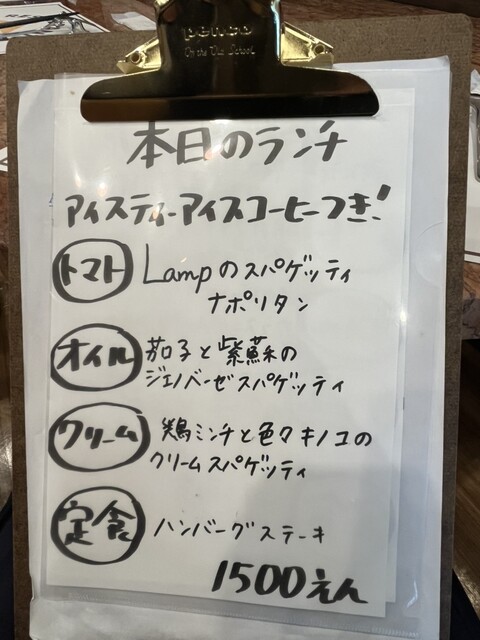 penco
On the Old School
本日のランチ
アイスティーアイスコーヒーつき!
トマト Lampのスパゲッティ
ナポリタン
オイル 茄子と紫蘇の
ジェノバーゼスパゲッティ
クリーム 鶏ミンチと色々キノコの
クリームスパゲッティ
定食 ハンバーグステーキ
1500えん